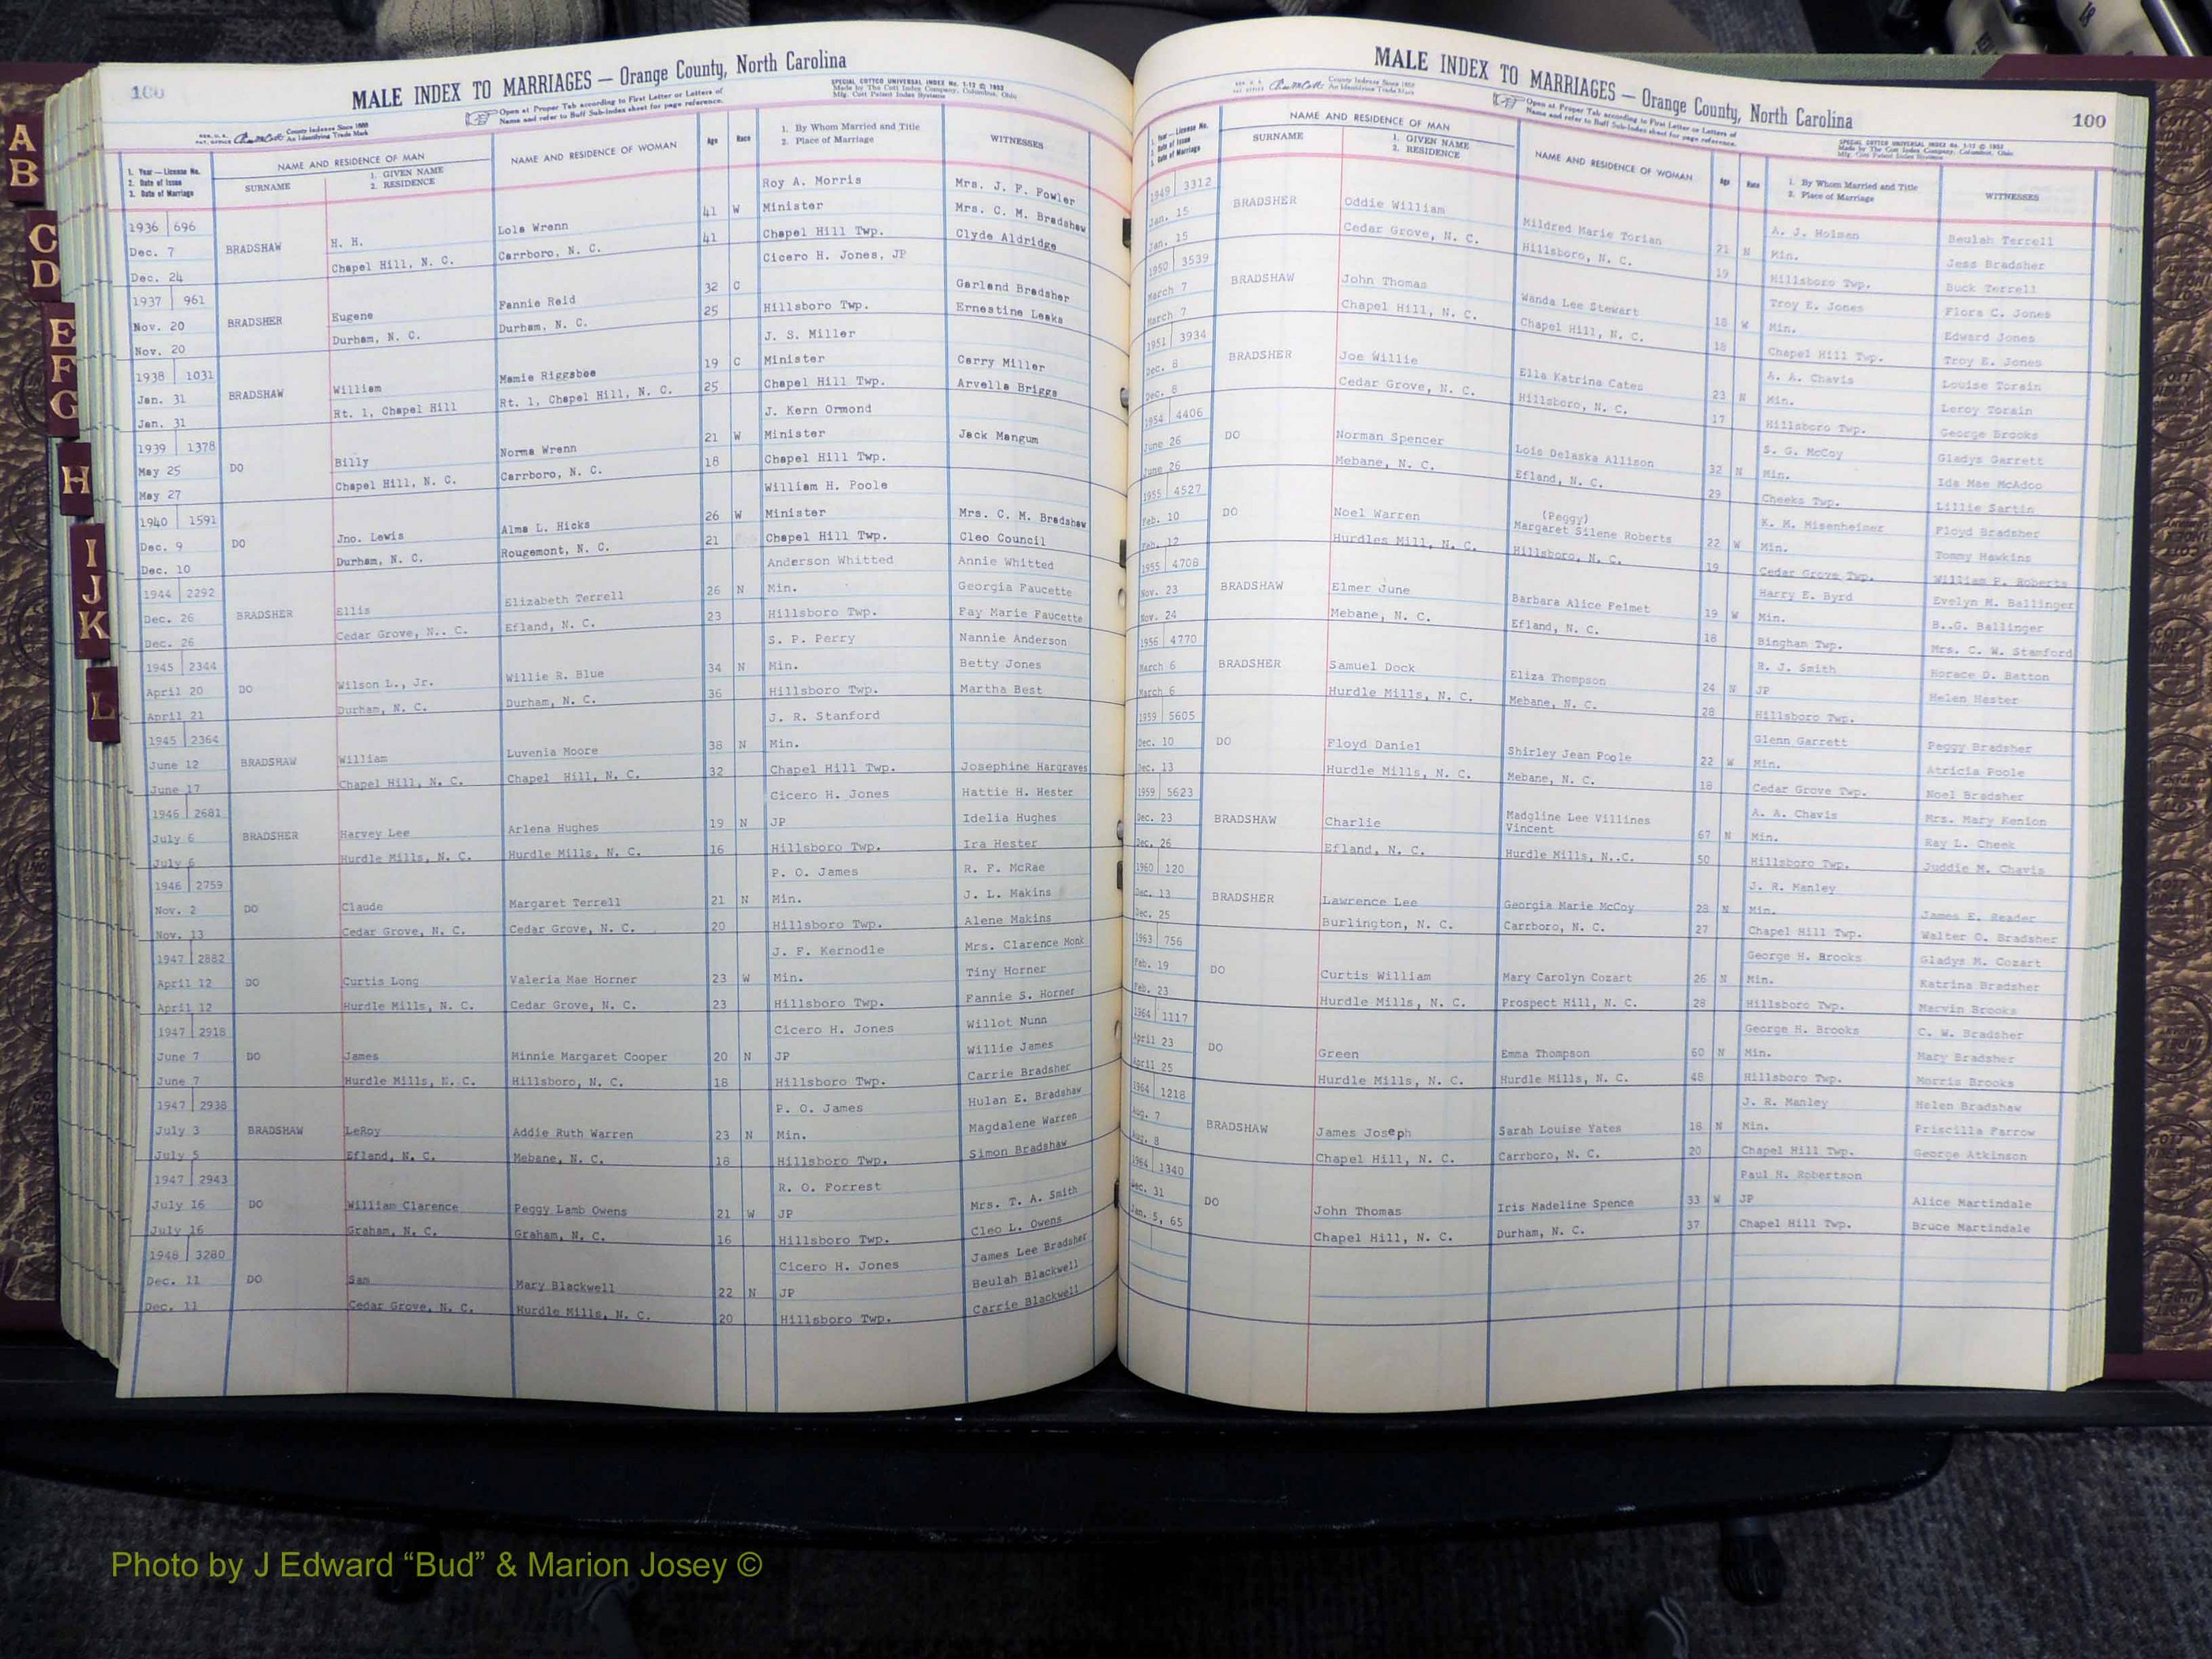 A
B
C
D
E
F
G
H
I
J
K
L
100
MALE INDEX TO MARRIAGES — Orange County, North Carolina
Open at Proper Tab according to First Letter or Letters of
Name and refer to Buff Sub-Index sheet for page reference.
SPECIAL COTTCO UNIVERSAL INDEX No. 1-12 © 1953
Made by The Cott Index Company, Columbus, Ohio
Mfg. Cott Patent Index Systems
County Indexes Since 1888
An Identifying Trade Mark
1. Year — License No.
2. Date of Issue
3. Date of Marriage
NAME AND RESIDENCE OF MAN
SURNAME
1. GIVEN NAME
2. RESIDENCE
NAME AND RESIDENCE OF WOMAN
Age
Race
1. By Whom Married and Title
2. Place of Marriage
WITNESSES
1936 696 Roy A. Morris Mrs. J. F. Fowler
Dec. 7 BRADSHAW H. H. Lola Wrenn 41 W Minister Mrs. C. M. Bradshaw
Dec. 24 Chapel Hill, N. C. Carrboro, N. C. 41 Chapel Hill Twp. Clyde Aldridge
1937 961 Cicero H. Jones, JP
Nov. 20 BRADSHER Eugene Fannie Reid 32 C Garland Bradsher
Nov. 20 Durham, N. C. Durham, N. C. 25 Hillsboro Twp. Ernestine Leaks
1938 1031 J. S. Miller
Jan. 31 BRADSHAW William Mamie Riggsbee 19 C Minister Carry Miller
Jan. 31 Rt. 1, Chapel Hill Rt. 1, Chapel Hill, N. C. 25 Chapel Hill Twp. Arvella Briggs
1939 1378 J. Kern Ormond
May 25 DO Billy Norma Wrenn 21 W Minister Jack Mangum
May 27 Chapel Hill, N. C. Carrboro, N. C. 18 Chapel Hill Twp.
1940 1591 William H. Poole
Dec. 9 DO Jno. Lewis Alma L. Hicks 26 W Minister Mrs. C. M. Bradshaw
Dec. 10 Durham, N. C. Rougemont, N. C. 21 Chapel Hill Twp. Cleo Council
1944 2292 Anderson Whitted Annie Whitted
Dec. 26 BRADSHER Ellis Elizabeth Terrell 26 N Min. Georgia Faucette
Dec. 26 Cedar Grove, N.. C. Efland, N. C. 23 Hillsboro Twp. Fay Marie Faucette
1945 2344 S. P. Perry Nannie Anderson
April 20 DO Wilson L., Jr. Willie R. Blue 34 N Min. Betty Jones
April 21 Durham, N. C. Durham, N. C. 36 Hillsboro Twp. Martha Best
1945 2364 J. R. Stanford
June 12 BRADSHAW William Luvenia Moore 38 N Min.
June 17 Chapel Hill, N. C. Chapel Hill, N. C. 32 Chapel Hill Twp. Josephine Hargraves
1946 2681 Cicero H. Jones Hattie H. Hester
July 6 BRADSHER Harvey Lee Arlena Hughes 19 N JP Idelia Hughes
July 6 Hurdle Mills, N. C. Hurdle Mills, N. C. 16 Hillsboro Twp. Ira Hester
1946 2759 P. O. James R. F. McRae
Nov. 2 DO Claude Margaret Terrell 21 N Min. J. L. Makins
Nov. 13 Cedar Grove, N. C. Cedar Grove, N. C. 20 Hillsboro Twp. Alene Makins
1947 2882 J. F. Kernodle Mrs. Clarence Monk
April 12 DO Curtis Long Valeria Mae Horner 23 W Min. Tiny Horner
April 12 Hurdle Mills, N. C. Cedar Grove, N. C. 23 Hillsboro Twp. Fannie S. Horner
1947 2918 Cicero H. Jones Willot Nunn
June 7 DO James Minnie Margaret Cooper 20 N JP Willie James
June 7 Hurdle Mills, N. C. Hillsboro, N. C. 18 Hillsboro Twp. Carrie Bradsher
1947 2938 P. O. James Hulan E. Bradshaw
July 3 BRADSHAW LeRoy Addie Ruth Warren 23 N Min. Magdalene Warren
July 5 Efland, N. C. Mebane, N. C. 18 Hillsboro Twp. Simon Bradshaw
1947 2943 R. O. Forrest
July 16 DO William Clarence Peggy Lamb Owens 21 W JP Mrs. T. A. Smith
July 16 Graham, N. C. Graham, N. C. 16 Hillsboro Twp. Cleo L. Owens
1948 3280 Cicero H. Jones James Lee Bradsher
Dec. 11 DO Sam Mary Blackwell 22 N JP Beulah Blackwell
Dec. 11 Cedar Grove, N. C. Hurdle Mills, N. C. 20 Hillsboro Twp. Carrie Blackwell
MALE INDEX TO MARRIAGES — Orange County, North Carolina
100
County Indexes Since 1888
An Identifying Trade Mark
Open at Proper Tab according to First Letter or Letters of
Name and refer to Buff Sub-Index sheet for page reference.
SPECIAL COTTCO UNIVERSAL INDEX No. 1-12 © 1953
Made by The Cott Index Company, Columbus, Ohio
Mfg. Cott Patent Index Systems
1. Year — License No.
2. Date of Issue
3. Date of Marriage
NAME AND RESIDENCE OF MAN
SURNAME
1. GIVEN NAME
2. RESIDENCE
NAME AND RESIDENCE OF WOMAN
Age
Race
1. By Whom Married and Title
2. Place of Marriage
WITNESSES
1949 3312 A. J. Holman Beulah Terrell
Jan. 15 BRADSHER Oddie William Mildred Marie Torian 21 N Min. Jess Bradsher
Jan. 15 Cedar Grove, N. C. Hillsboro, N. C. 19 Hillsboro Twp. Buck Terrell
1950 3539 Troy E. Jones Flora C. Jones
March 7 BRADSHAW John Thomas Wanda Lee Stewart 18 W Min. Edward Jones
March 7 Chapel Hill, N. C. Chapel Hill, N. C. 18 Chapel Hill Twp. Troy E. Jones
1951 3934 A. A. Chavis Louise Torain
Dec. 8 BRADSHER Joe Willie Ella Katrina Cates 23 N Min. Leroy Torain
Dec. 8 Cedar Grove, N. C. Hillsboro, N. C. 17 Hillsboro Twp. George Brooks
1954 4406 S. G. McCoy Gladys Garrett
June 26 DO Norman Spencer Lois Delaska Allison 32 N Min. Ida Mae McAdoo
June 26 Mebane, N. C. Efland, N. C. 29 Cheeks Twp. Lillie Sartin
1955 4527 (Peggy) K. M. Misenheimer Floyd Bradsher
Feb. 10 DO Noel Warren Margaret Silene Roberts 22 W Min. Tommy Hawkins
Feb. 12 Hurdles Mill, N. C. Hillsboro, N. C. 19 Cedar Grove Twp. William P. Roberts
1955 4708 Harry E. Byrd Evelyn M. Ballinger
Nov. 23 BRADSHAW Elmer June Barbara Alice Feimet 19 W Min. B..G. Ballinger
Nov. 24 Mebane, N. C. Efland, N. C. 18 Bingham Twp. Mrs. C. W. Stamford
1956 4770 R. J. Smith Horace D. Batton
March 6 BRADSHER Samuel Dock Eliza Thompson 24 N JP Helen Hester
March 6 Hurdle Mills, N. C. Mebane, N. C. 28 Hillsboro Twp.
1959 5605 Glenn Garrett Peggy Bradsher
Dec. 10 DO Floyd Daniel Shirley Jean Poole 22 W Min. Atricia Poole
Dec. 13 Hurdle Mills, N. C. Mebane, N. C. 18 Cedar Grove Twp. Noel Bradsher
1959 5623 Madgline Lee Villines A. A. Chavis Mrs. Mary Kenion
Dec. 23 BRADSHAW Charlie Vincent 67 N Min. Ray L. Cheek
Dec. 26 Efland, N. C. Hurdle Mills, N..C. 50 Hillsboro Twp. Juddie M. Chavis
1960 120 J. R. Manley
Dec. 13 BRADSHER Lawrence Lee Georgia Marie McCoy 28 N Min. James E. Reader
Dec. 25 Burlington, N. C. Carrboro, N. C. 27 Chapel Hill Twp. Walter O. Bradsher
1963 756 George H. Brooks Gladys M. Cozart
Feb. 19 DO Curtis William Mary Carolyn Cozart 26 N Min. Katrina Bradsher
Feb. 23 Hurdle Mills, N. C. Prospect Hill, N. C. 28 Hillsboro Twp. Marvin Brooks
1964 1117 George H. Brooks C. W. Bradsher
April 23 DO Green Emma Thompson 60 N Min. Mary Bradsher
April 25 Hurdle Mills, N. C. Hurdle Mills, N. C. 48 Hillsboro Twp. Morris Brooks
1964 1218 J. R. Manley Helen Bradshaw
Aug. 7 BRADSHAW James Joseph Sarah Louise Yates 18 N Min. Priscilla Farrow
Aug. 8 Chapel Hill, N. C. Carrboro, N. C. 20 Chapel Hill Twp. George Atkinson
1964 1340 Paul H. Robertson
Dec. 31 DO John Thomas Iris Madeline Spence 33 W JP Alice Martindale
Jan. 5, 65 Chapel Hill, N. C. Durham, N. C. 37 Chapel Hill Twp. Bruce Martindale
Photo by J Edward “Bud” & Marion Josey ©